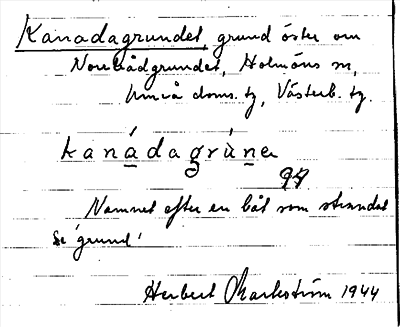 Kanadagrundet, grund öster om
Norrbådgrundet, Holmöns sn,
Umeå doms. tg, Västerb. tg.
kanádagrùne
94
Namnet efter en båt som strandat
Se 'grund'
Herbert Markström 1944